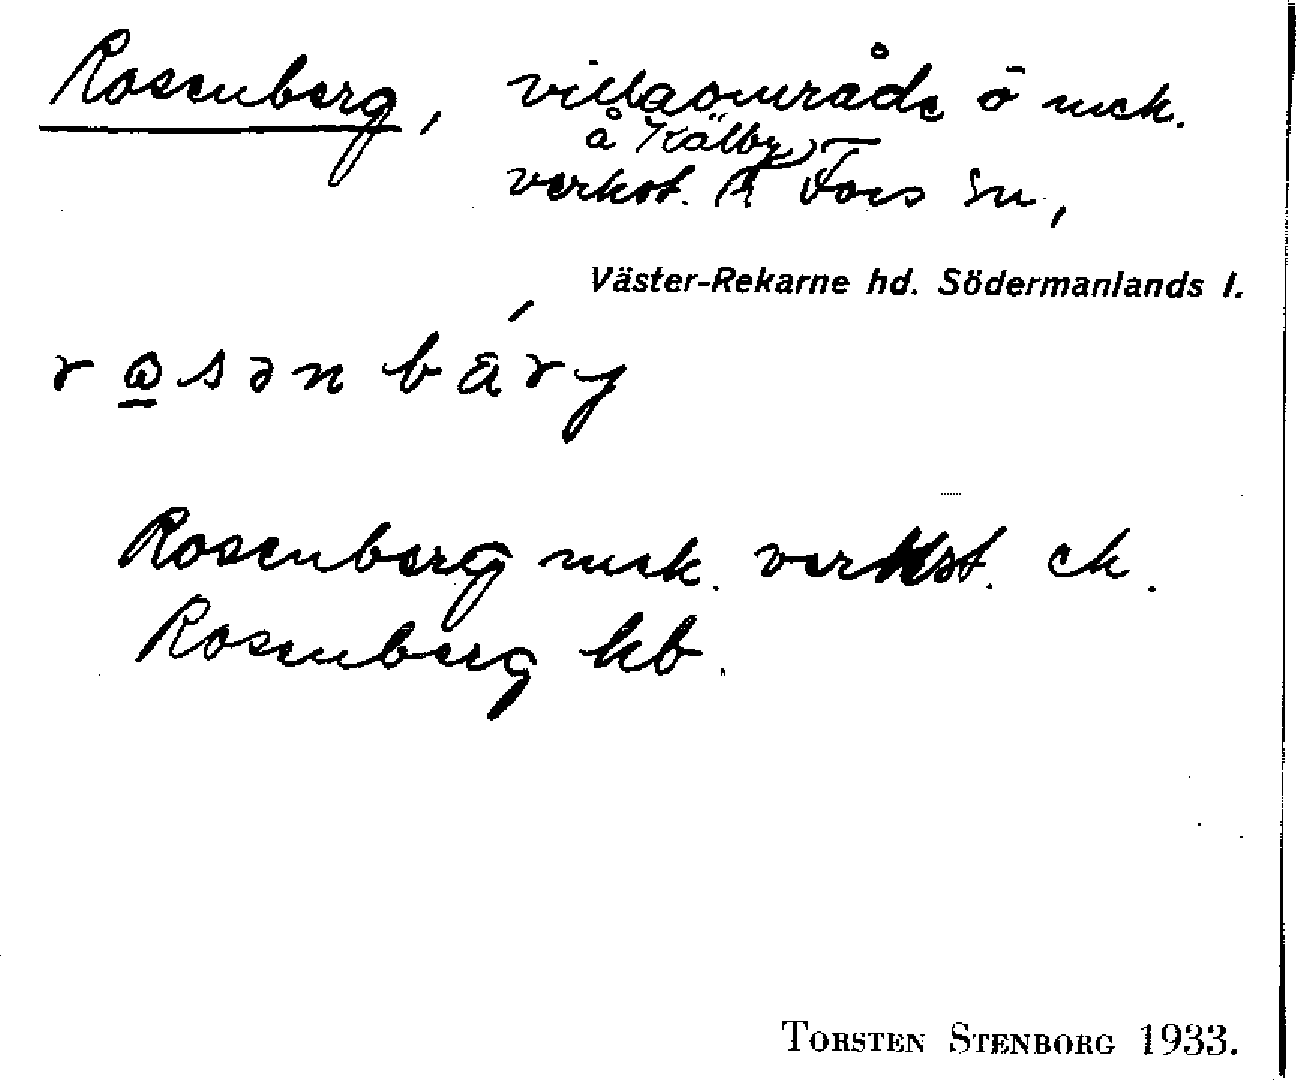 Rosenberg, villaområde ö mek.
å Kälby,
verkst. Fors sn,
Väster-Rekarne hd. Södermanlands l.
Rosenberg mek. verkst. ek.
Rosenberg kb.
TORSTEN STENBORG 1933.